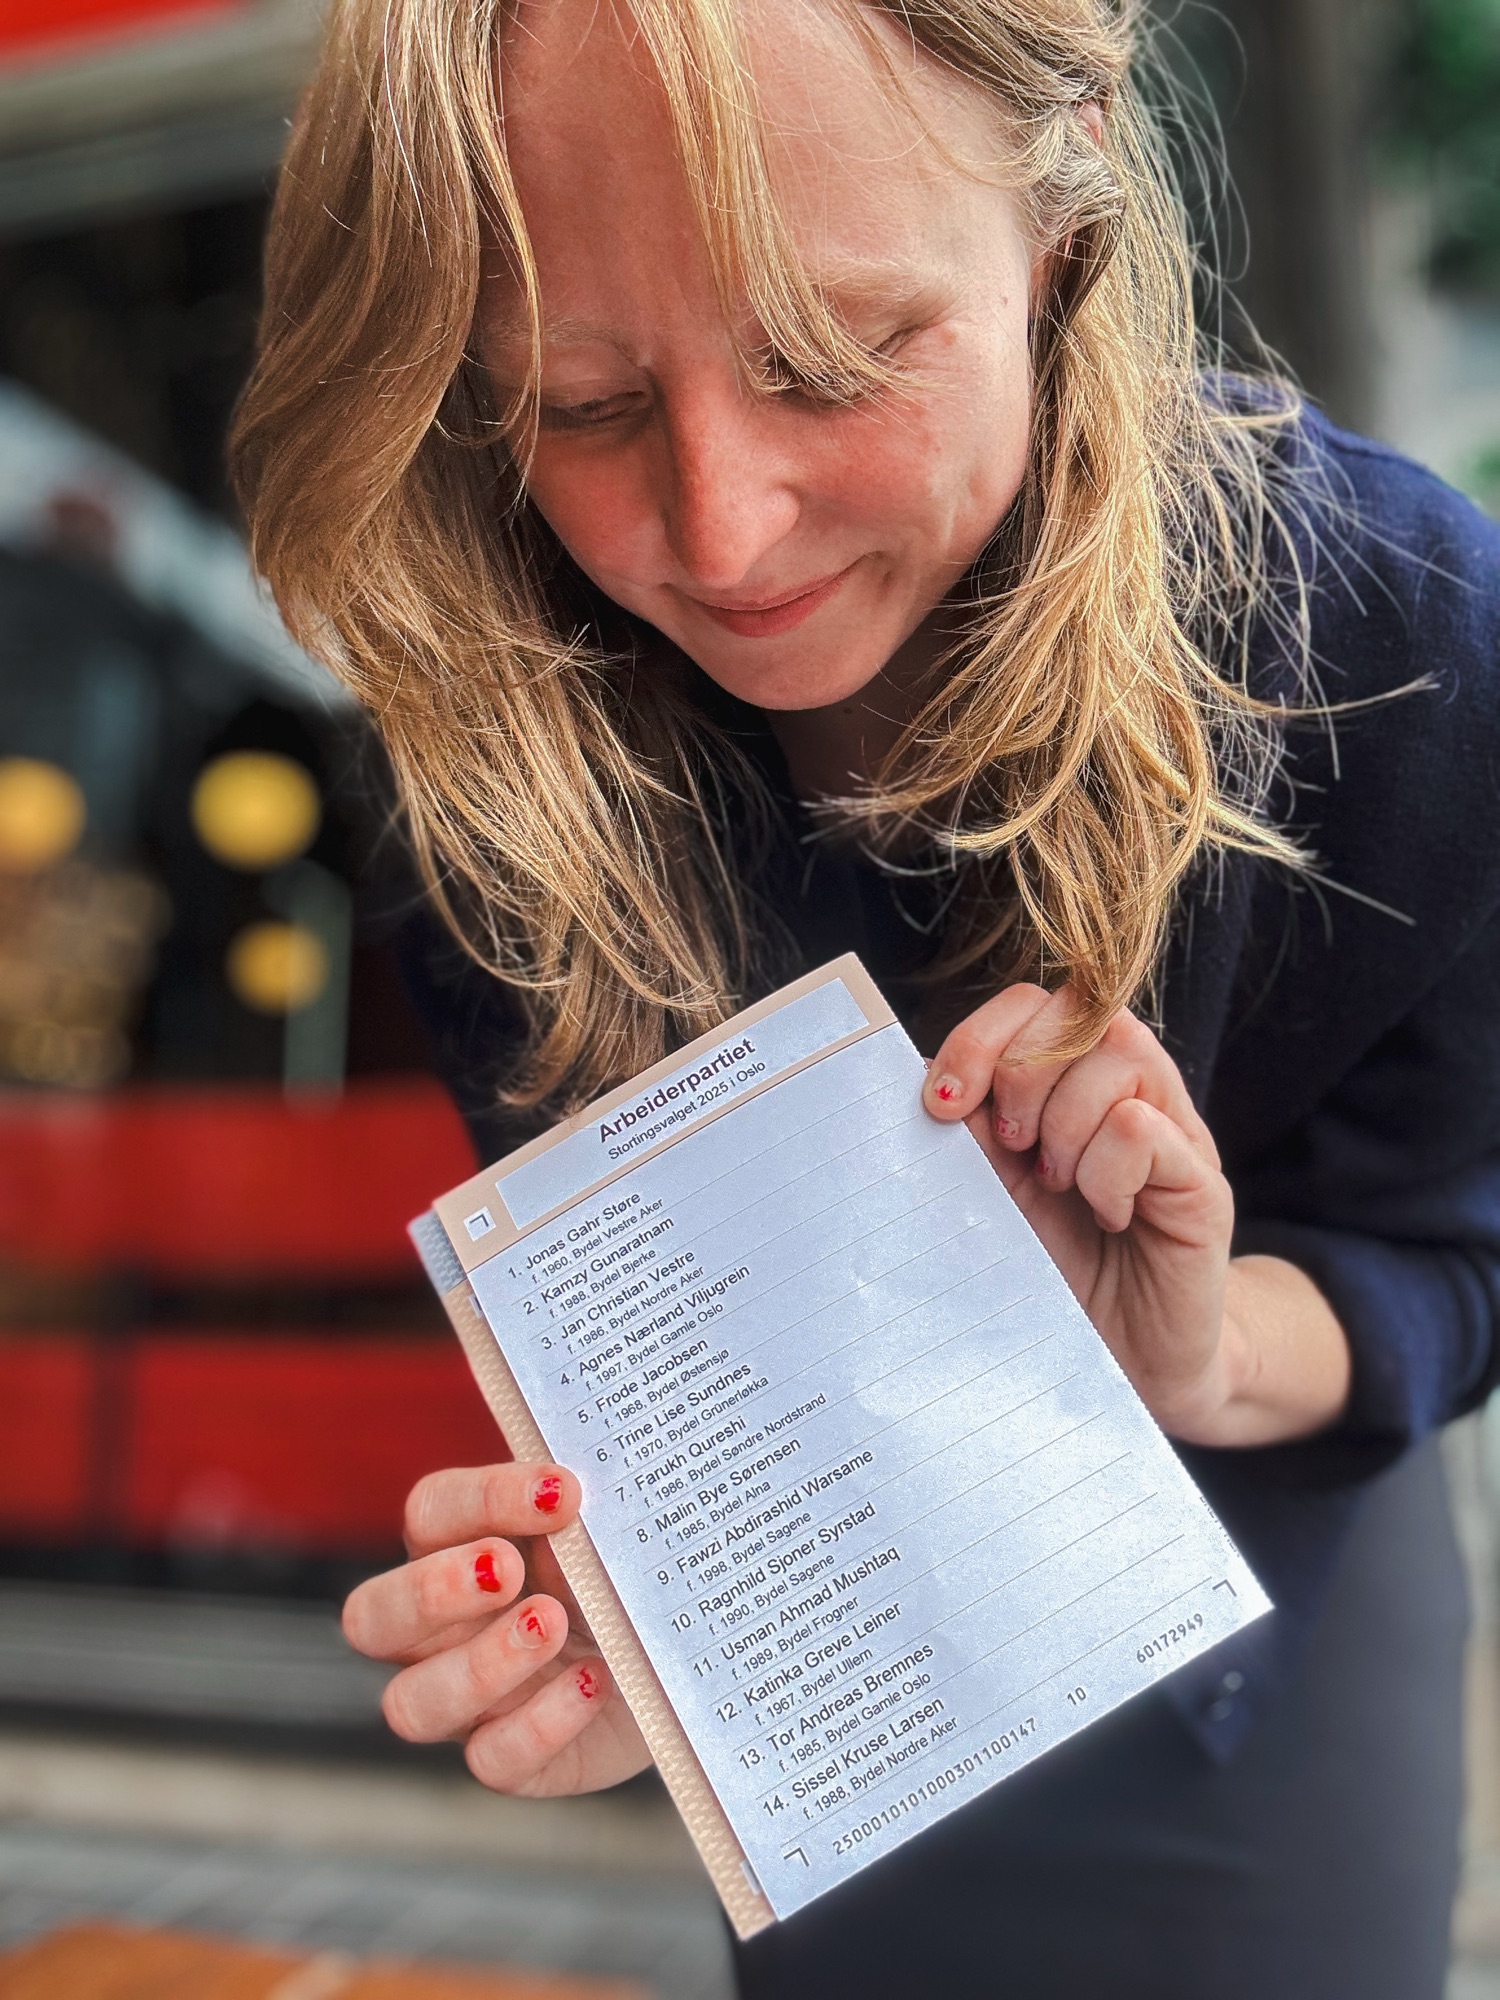 Arbeiderpartiet
Stortingsvalget 2025 i Oslo
1. Jonas Gahr Støre
f. 1960, Bydel Vestre Aker
2. Kamzy Gunaratnam
f. 1988, Bydel Bjerke
3. Jan Christian Vestre
f. 1986, Bydel Nordre Aker
4. Agnes Nærland Viljugrein
f. 1997, Bydel Gamle Oslo
5. Frode Jacobsen
f. 1968, Bydel Østensjø
6. Trine Lise Sundnes
f. 1970, Bydel Grünerløkka
7. Farukh Qureshi
f. 1986, Bydel Søndre Nordstrand
8. Malin Bye Sørensen
f. 1985, Bydel Alna
9. Fawzi Abdirashid Warsame
f. 1998, Bydel Sagene
10. Ragnhild Sjoner Syrstad
f. 1990, Bydel Sagene
11. Usman Ahmad Mushtaq
f. 1989, Bydel Frogner
12. Katinka Greve Leiner
f. 1967, Bydel Ullern
13. Tor Andreas Bremnes
f. 1985, Bydel Gamle Oslo
14. Sissel Kruse Larsen
f. 1988, Bydel Nordre Aker
25000101010003011001​47 10 60172949